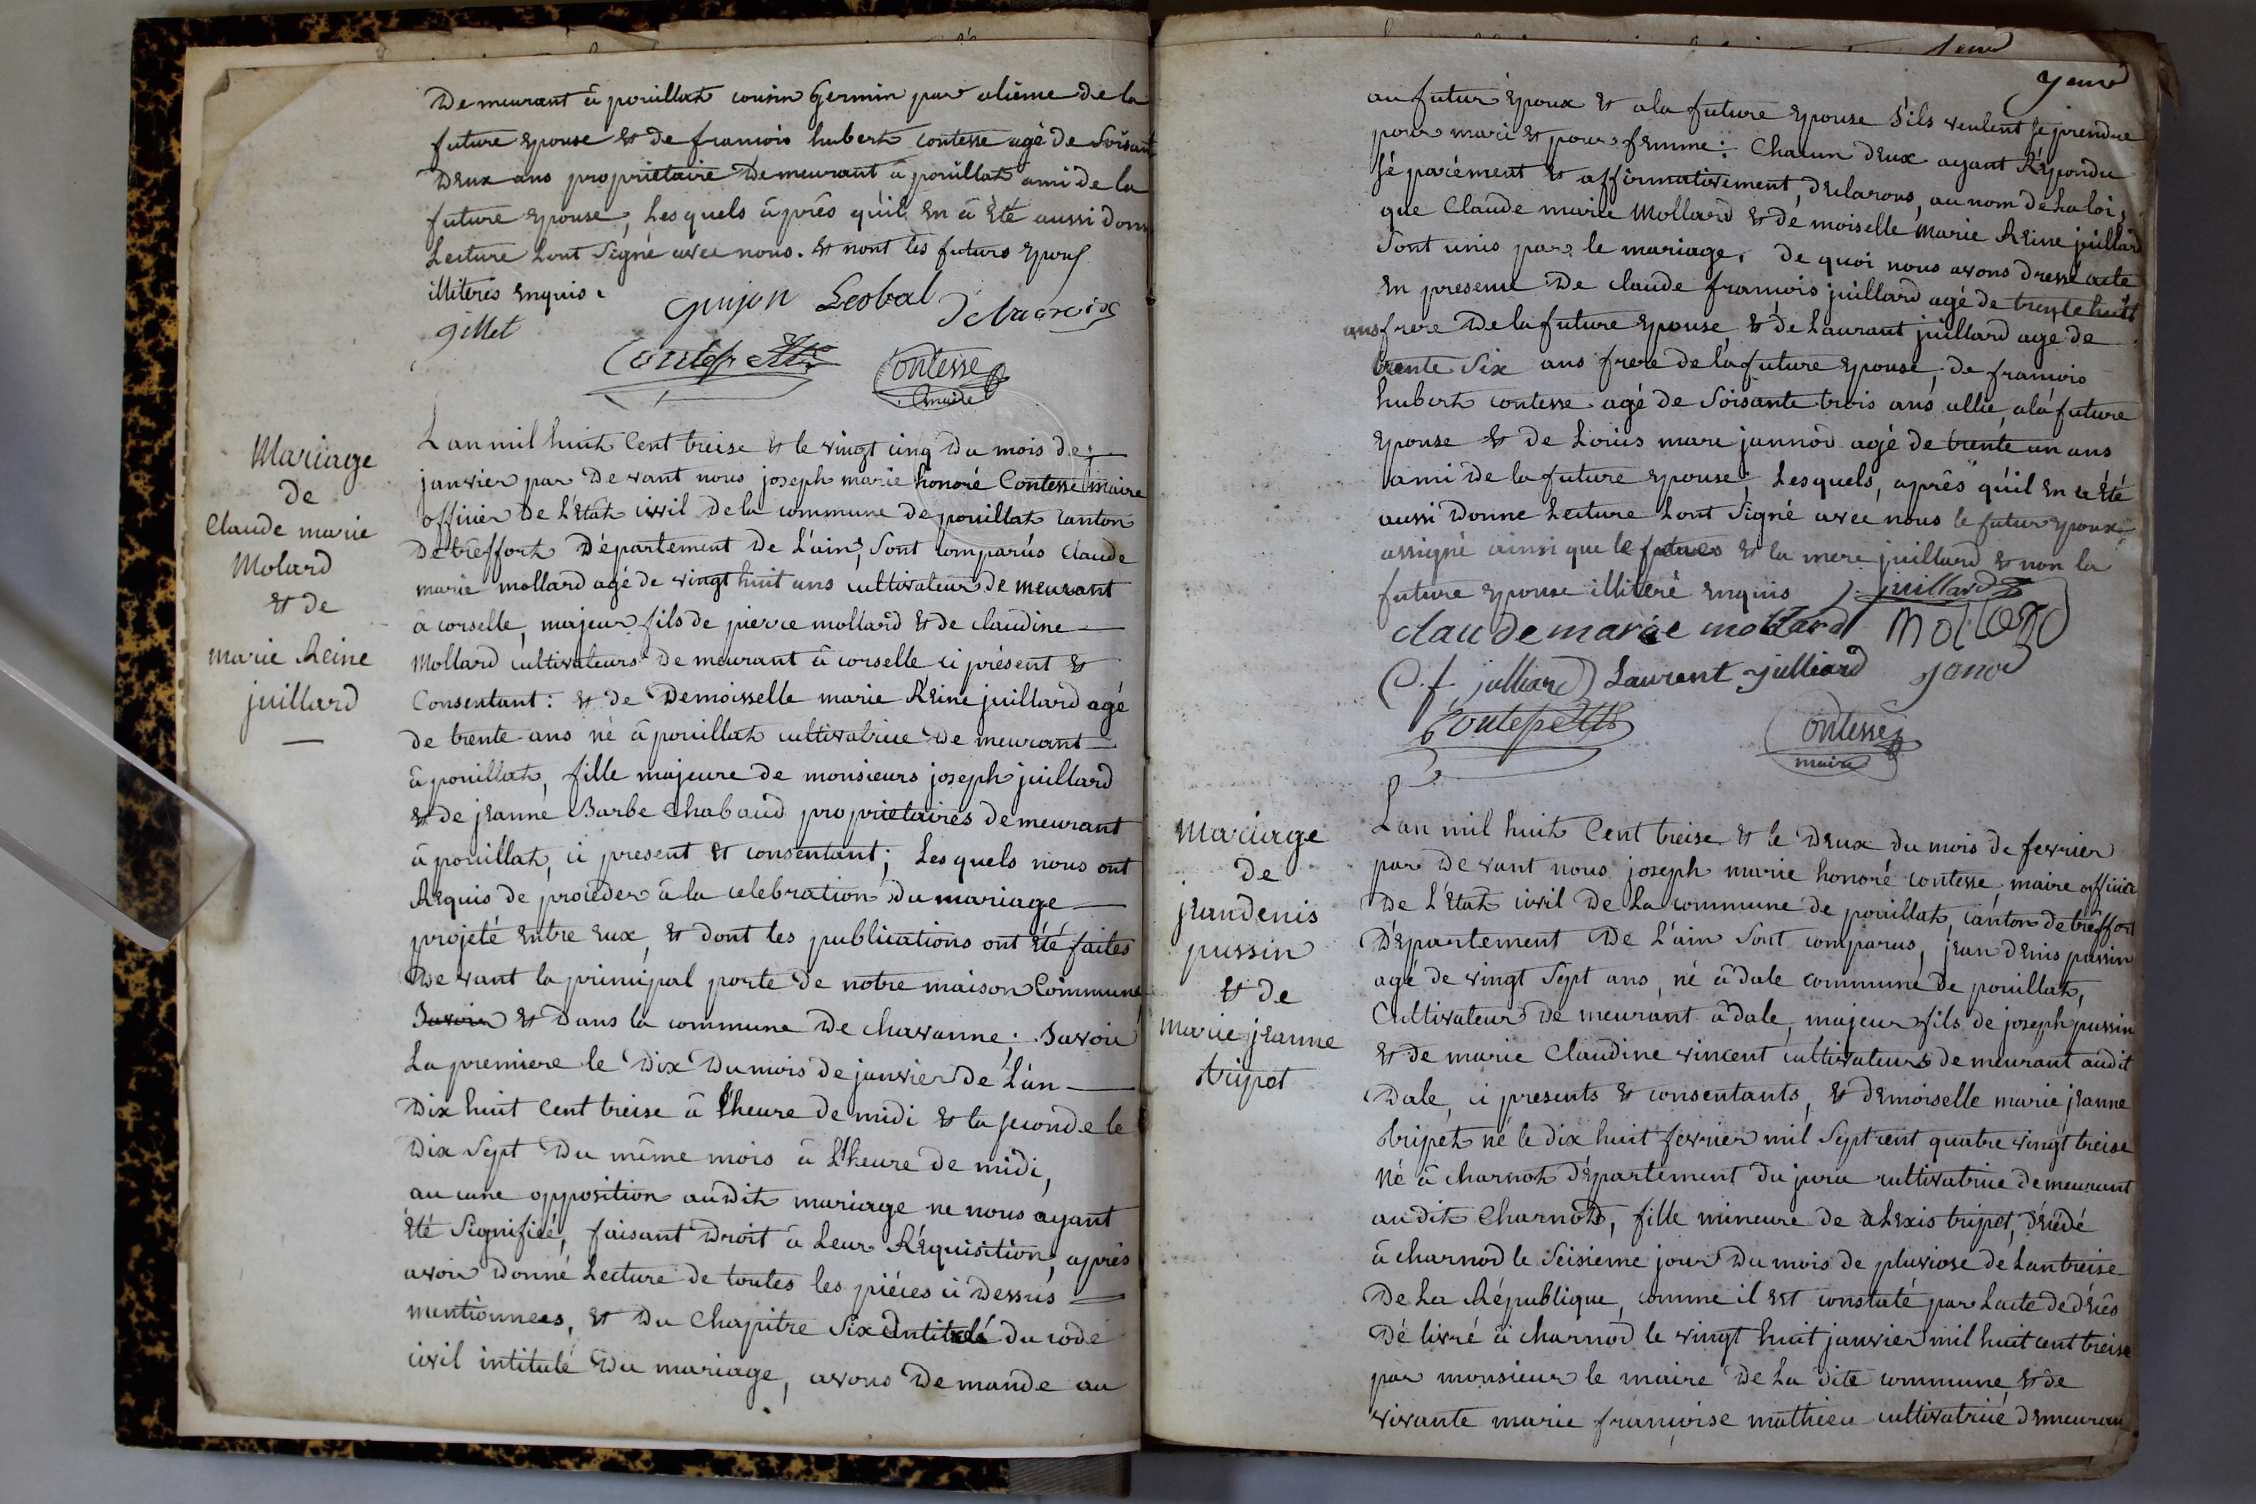 Demeurant à pouillat cousin Germin par aliéme de la
future Epouse et de francois hubert Contesse agé de Soisant
Deux ans propriétaire Demeurant à pouillat ami de la
future Epouse, Lesquels àprês qúil En à Eté aussi donn
Lecture Lont Signé avec nous. et nont les futurs Epous
illiteres Enquis.
gillet
gujon
Contesse
maire
Mariage
de
Claude marie
Molard
et de
marie Reine
juillard
Lan mil huit Cent treise et le vingt cinq Du mois de
janvier par Devant nous joseph marie honoré Contesse maire
officier De L'Etat civil de la commune de pouillat canton
De treffort Département De L'ain, Sont comparús Claude
marie mollard agé de vingt huit ans cultivateur demeurant
à corselle, majeur fils de pierre mollard et de claudine
Mollard cultivateurs demeurant à corselle ci présent et
Consentant: et de Demoisselle marie Reine juillard agé
de trente ans né à pouillat cultivatrice demeurant
à pouillat, fille majeure de monsieurs joseph juillard
et de jeanne Barbe Chabaud propriétaires demeurant
à pouillat, ci present et consentant; Lesquels nous ont
Requis de proceder à la celebration du mariage
projeté Entre Eux, et dont les publications ont Eté faites
Devant la principal porte de notre maison Commune
Savoir et dans la commune De chavanne; Savoir
La premiere le Dix Du mois de janvier de L'an
Dix huit Cent treise à Lheure de midi et la seconde le
Dix Sept Du même mois à Lheure de midi,
aucune opposition audit mariage ne nous ayant
Eté Signifiée, faisant Droit à Leur Réquisition, aprês
avoir Donné Lecture de toutes les piéces ci Dessus
mentionnees, et Du Chapitre Six intitulé du code
civil intitulé Du mariage, avons Demande au
au futur Epoux et a la future Epouse S'ils veulent se prendre
pour mari et pour femme: Chacun Deux ayant Répondu
séparément et affirmativement, déclarons, au nom de La loi,
que Claude marie Mollard et demoiselle Marie Reine juillard
Sont unis par le mariage. De quoi nous avons Dressé acte
En presence De claude francois juillard agé de trente huit
ans frere De la future Epouse, et de Laurant juillard agé de
trente Six ans frere de la future Epouse, de francois
hubert contesse agé de Soisante trois ans allie, a la future
Epouse et de Loüis marc jannod agé de trente un ans
ami de la future Epouse; Lesquels, aprês qúil En a Eté
aussi Donne Lecture Lont Signé avec nous le futur Epoux
assigné ainsi que le et la mere juillard et non la
future Epouse illiteré Enquis
juillard
claude marie mollard Mollard
C. f. julliard Laurent julliard janod
Contesse
maire
Mariage
de
jean denis
pussin
et de
Marie jeanne
tripet
Lan mil huit Cent treise et le Deux du mois de fevrier
par Devant nous joseph marie honoré contesse maire officier
De L'Etat civil De La commune de pouillat, canton de treffort
Département De L'ain Sont comparus, jean Denis pussin
agé de vingt Sept ans, né à dale commune de pouillat,
Cultivateur Demeurant à dale, majeur fils de joseph pussin
et de marie Claudine vincent cultivateurs demeurant audit
Dale, ci presents et consentants, et demoiselle marie jeanne
tripet né le dix huit fevrier mil Sept cent quatre vingt treise
Né à charnot département du jura cultivatrice demeurant
audit Charnod, fille mineure de alexis tripet, décédé
à charnod le Seisieme jour Du mois de pluviose de Lan treise
De La République, comme il est constaté par Lacte de décês
Délivré à charnod le vingt huit janvier mil huit cent treise
par monsieur le maire De La dite commune, et de
vivante marie françoise mathieu cultivatrice demeuran